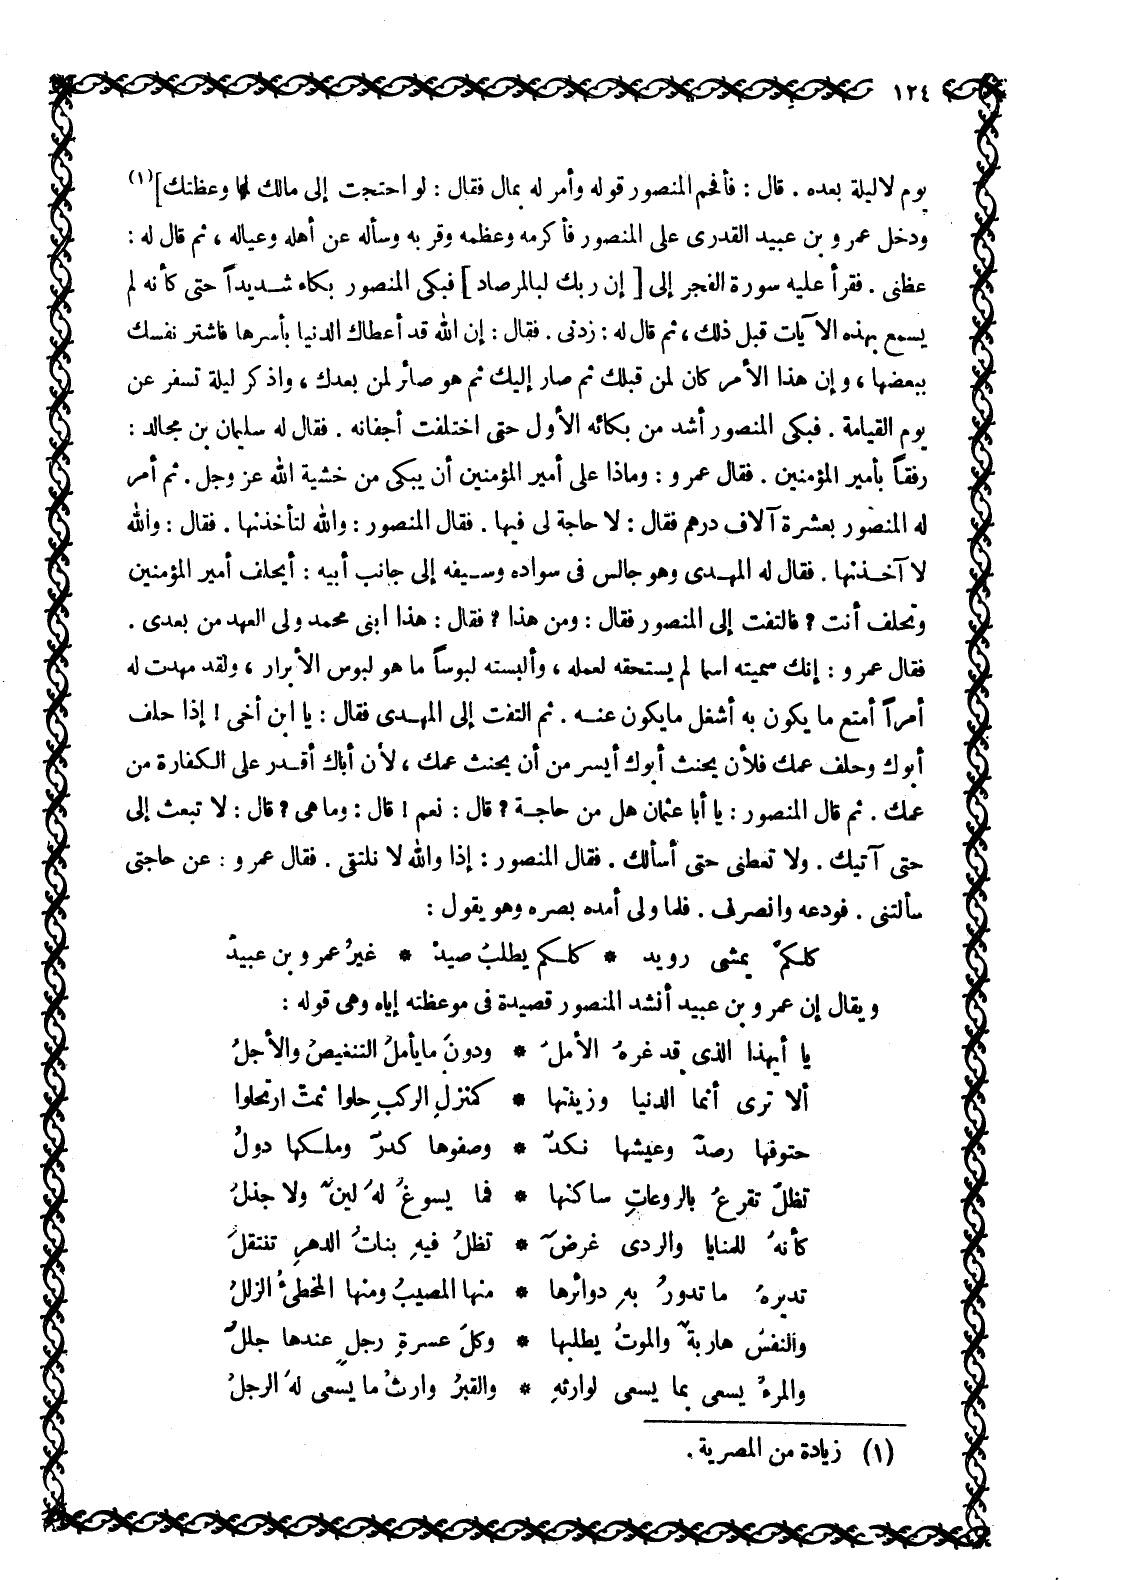 ١٢٤
يوم لا ليلة بعده . قال : فأفحم المنصور قوله وأمر له بمال فقال : لو احتجت إلى مالك لما وعظتك ](١)
ودخل عمرو بن عبيد القدرى على المنصور فأكرمه وعظمه وقربه وسأله عن أهله وعياله ، ثم قال له :
عظنى . فقرأ عليه سورة الفجر إلى [ إن ربك لبالمرصاد ] فبكى المنصور بكاء شديداً حتى كأنه لم
يسمع بهذه الآيات قبل ذلك ، ثم قال له : زدنى . فقال : إن الله قد أعطاك الدنيا بأسرها فاشتر نفسك
ببعضها ، وإن هذا الأمر كان لمن قبلك ثم صار إليك ثم هو صائر لمن بعدك ، واذكر ليلة تسفر عن
يوم القيامة . فبكى المنصور أشد من بكائه الأول حتى اختلفت أجفانه . فقال له سليمان بن مجالد :
رفقاً بأمير المؤمنين . فقال عمرو : وماذا على أمير المؤمنين أن يبكى من خشية الله عز وجل . ثم أمر
له المنصور بعشرة آلاف درهم فقال : لا حاجة لى فيها . فقال المنصور : والله لتأخذنها . فقال : والله
لا آخذنها . فقال له المهدى وهو جالس فى سواده وسيفه إلى جانب أبيه : أيحلف أمير المؤمنين
وتحلف أنت ؟ فالتفت إلى المنصور فقال : ومن هذا ؟ فقال : هذا ابنى محمد ولى العهد من بعدى .
فقال عمرو : إنك سميته اسما لم يستحقه لعمله ، وألبسته لبوساً ما هو لبوس الأبرار ، ولقد مهدت له
أمراً أمتع ما يكون به أشغل ما يكون عنه . ثم التفت إلى المهدى فقال : يا ابن أخى ! إذا حلف
أبوك وحلف عمك فلأن يحنث أبوك أيسر من أن يحنث عمك ، لأن أباك أقدر على الكفارة من
عمك . ثم قال المنصور : يا أبا عثمان هل من حاجة ؟ قال : نعم ! قال : وما هى ؟ قال : لا تبعث إلى
حتى آتيك . ولا تعطنى حتى أسألك . فقال المنصور : إذا والله لا نلتقى . فقال عمرو : عن حاجتى
سألتنى . فودعه وانصرف . فلما ولى أمده بصره وهو يقول :
كلكمْ يمشى رويد * كلكم يطلبُ صيدْ * غيرُ عمرو بن عبيدْ
ويقال إن عمرو بن عبيد أنشد المنصور قصيدة فى موعظته إياه وهى قوله :
يا أيهذا الذى قد غرهُ الأملُ * ودونَ ما يأملُ التنغيصُ والأجلُ
ألا ترى أنما الدنيا وزينتها * كمنزلِ الركبِ حلوا ثمتَ ارتحلوا
حتوفها رصدٌ وعيشها نكدٌ * وصفوها كدرٌ وملكها دولُ
تظلُّ تقرعُ بالروعاتِ ساكنها * فما يسوغُ لهُ لينٌ ولا جذلُ
كأنهُ للمنايا والردى غرضٌ * تظلُ فيهِ بناتُ الدهرِ تنتقلُ
تديرهُ ما تدورُ بهِ دوائرها * منها المصيبُ ومنها المخطئُ الزللُ
والنفسُ هاربةٌ والموتُ يطلبها * وكلَ عسرةِ رجلٍ عندها جللٌ
والمرءُ يسعى بما يسعى لوارثهِ * والقبرُ وارثُ ما يسعى لهُ الرجلُ
(١) زيادة من المصرية .